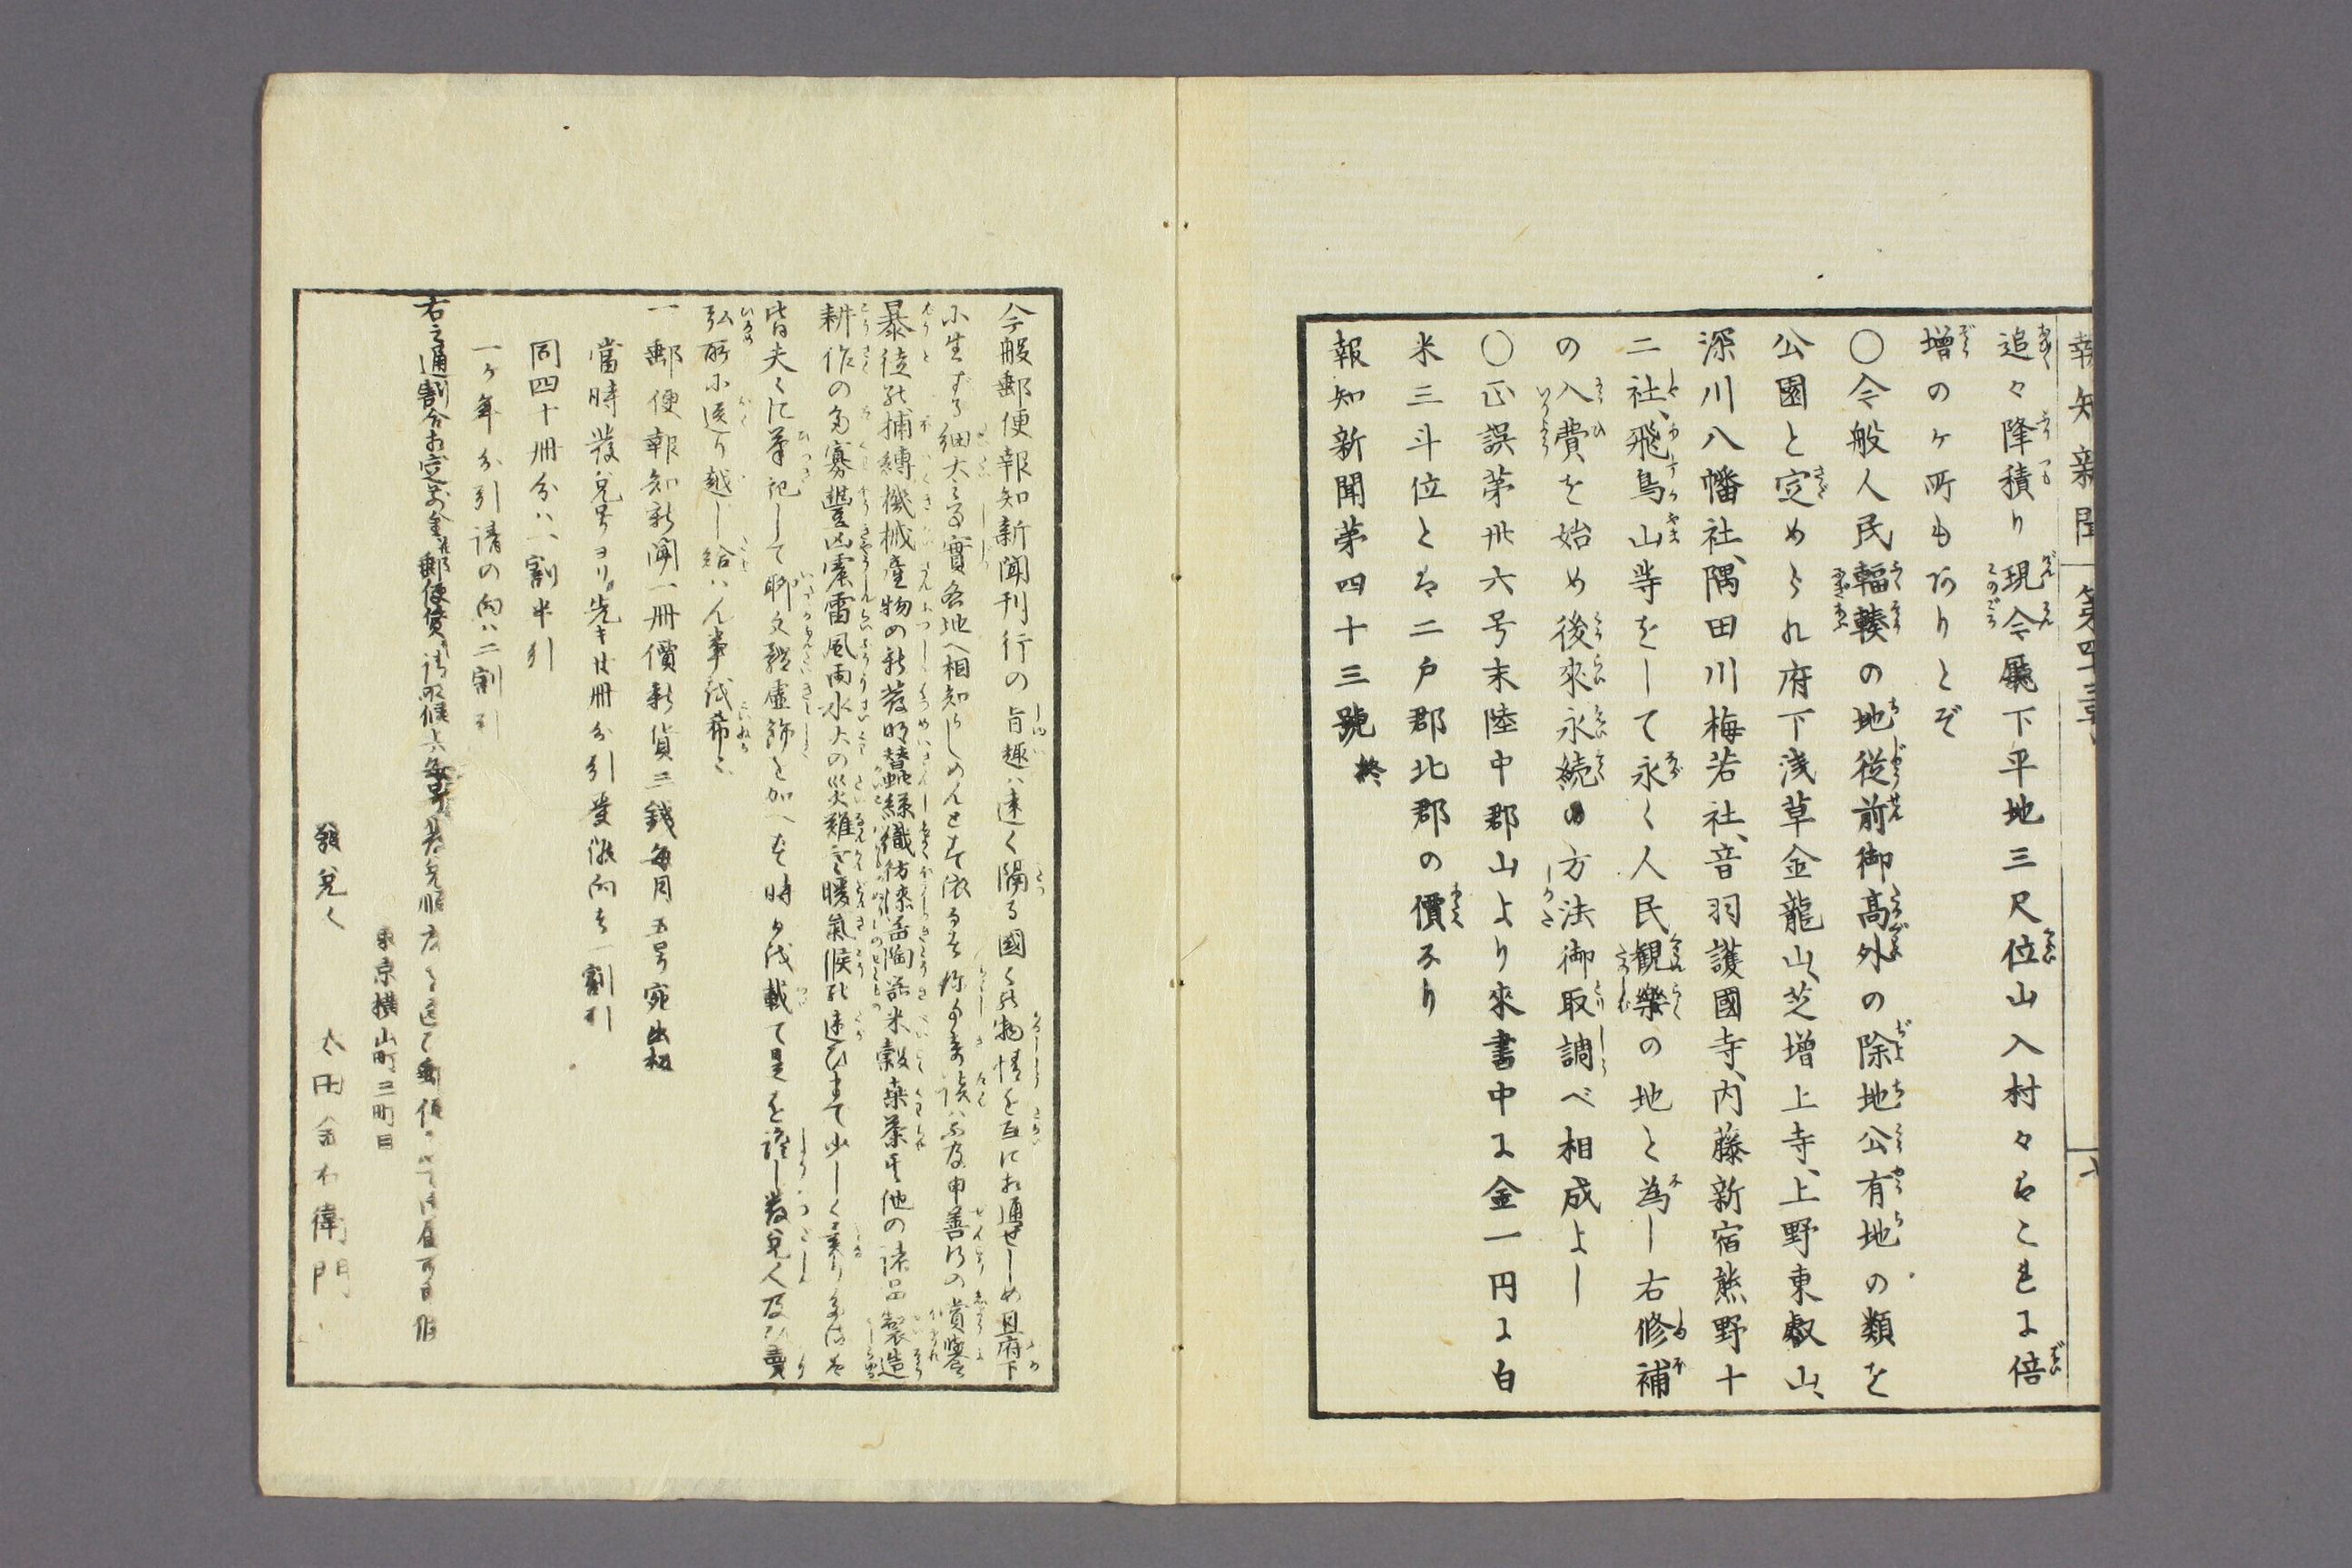 報知新聞 第四十三号
追々降積り現今廳下平地三尺位山入村々はこれに倍
増のヶ所もありとぞ
〇今般人民輻輳の地従前御高外の除地公有地の類を
公園と定められ府下浅草金龍山、芝增上寺、上野東叡山、
深川八幡社、隅田川梅若社、音羽護國寺、内藤新宿熊野十
二社、飛鳥山等をして永く人民観樂の地と為し右修補
の入費を始め後來永続の方法御取調べ相成よし
〇正誤第卅六号末陸中郡山より來書中に金一円に白
米三斗位とは二戸郡北郡の價なり
報知新聞第四十三號 終
今般郵便報知新聞刊行の旨趣ハ遠く隔る國々の物情を互に相通せしめ且府下
に生ずる細大之事實各地へ相知らしめんとす依る 善行の賞譽
暴徒の捕縛機械産物の新發明蠶絲織紡漆器陶器米穀薬茶其他の諸品製造
耕作の多寡豐凶雷風雨水火の災難寒暖氣候の違ひまて少しく異りたるは
皆夫々に筆記して聊文飾虚飾を加へず時々載て是を證し發兌人及賣
弘所に送り越し給ハん事を希ふ
一 郵便報知新聞一冊價新貨三錢毎月五号宛出板
當時發兌号ヨリ先キ廿冊分引受候向も一割引
同四十冊分ハ一割半引
一ヶ年分引請の向ハ二割引
右之通割合相定前金郵便賃
東京横山町三町目
發兌人 太田金右衛門